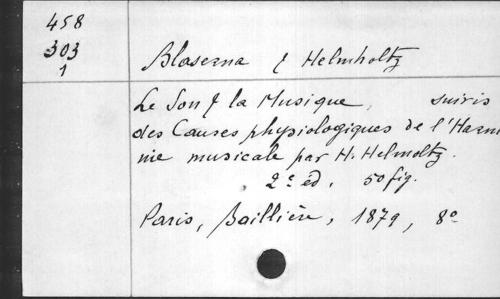 458
303
1
Blaserna & Helmholtz
Le Son & la Musique, suivis
des Causes physiologiques de l'Harmo
nie musicale par H. Helmoltz.
2e éd, 50 fig.
Paris, Baillière, 1879, 8o